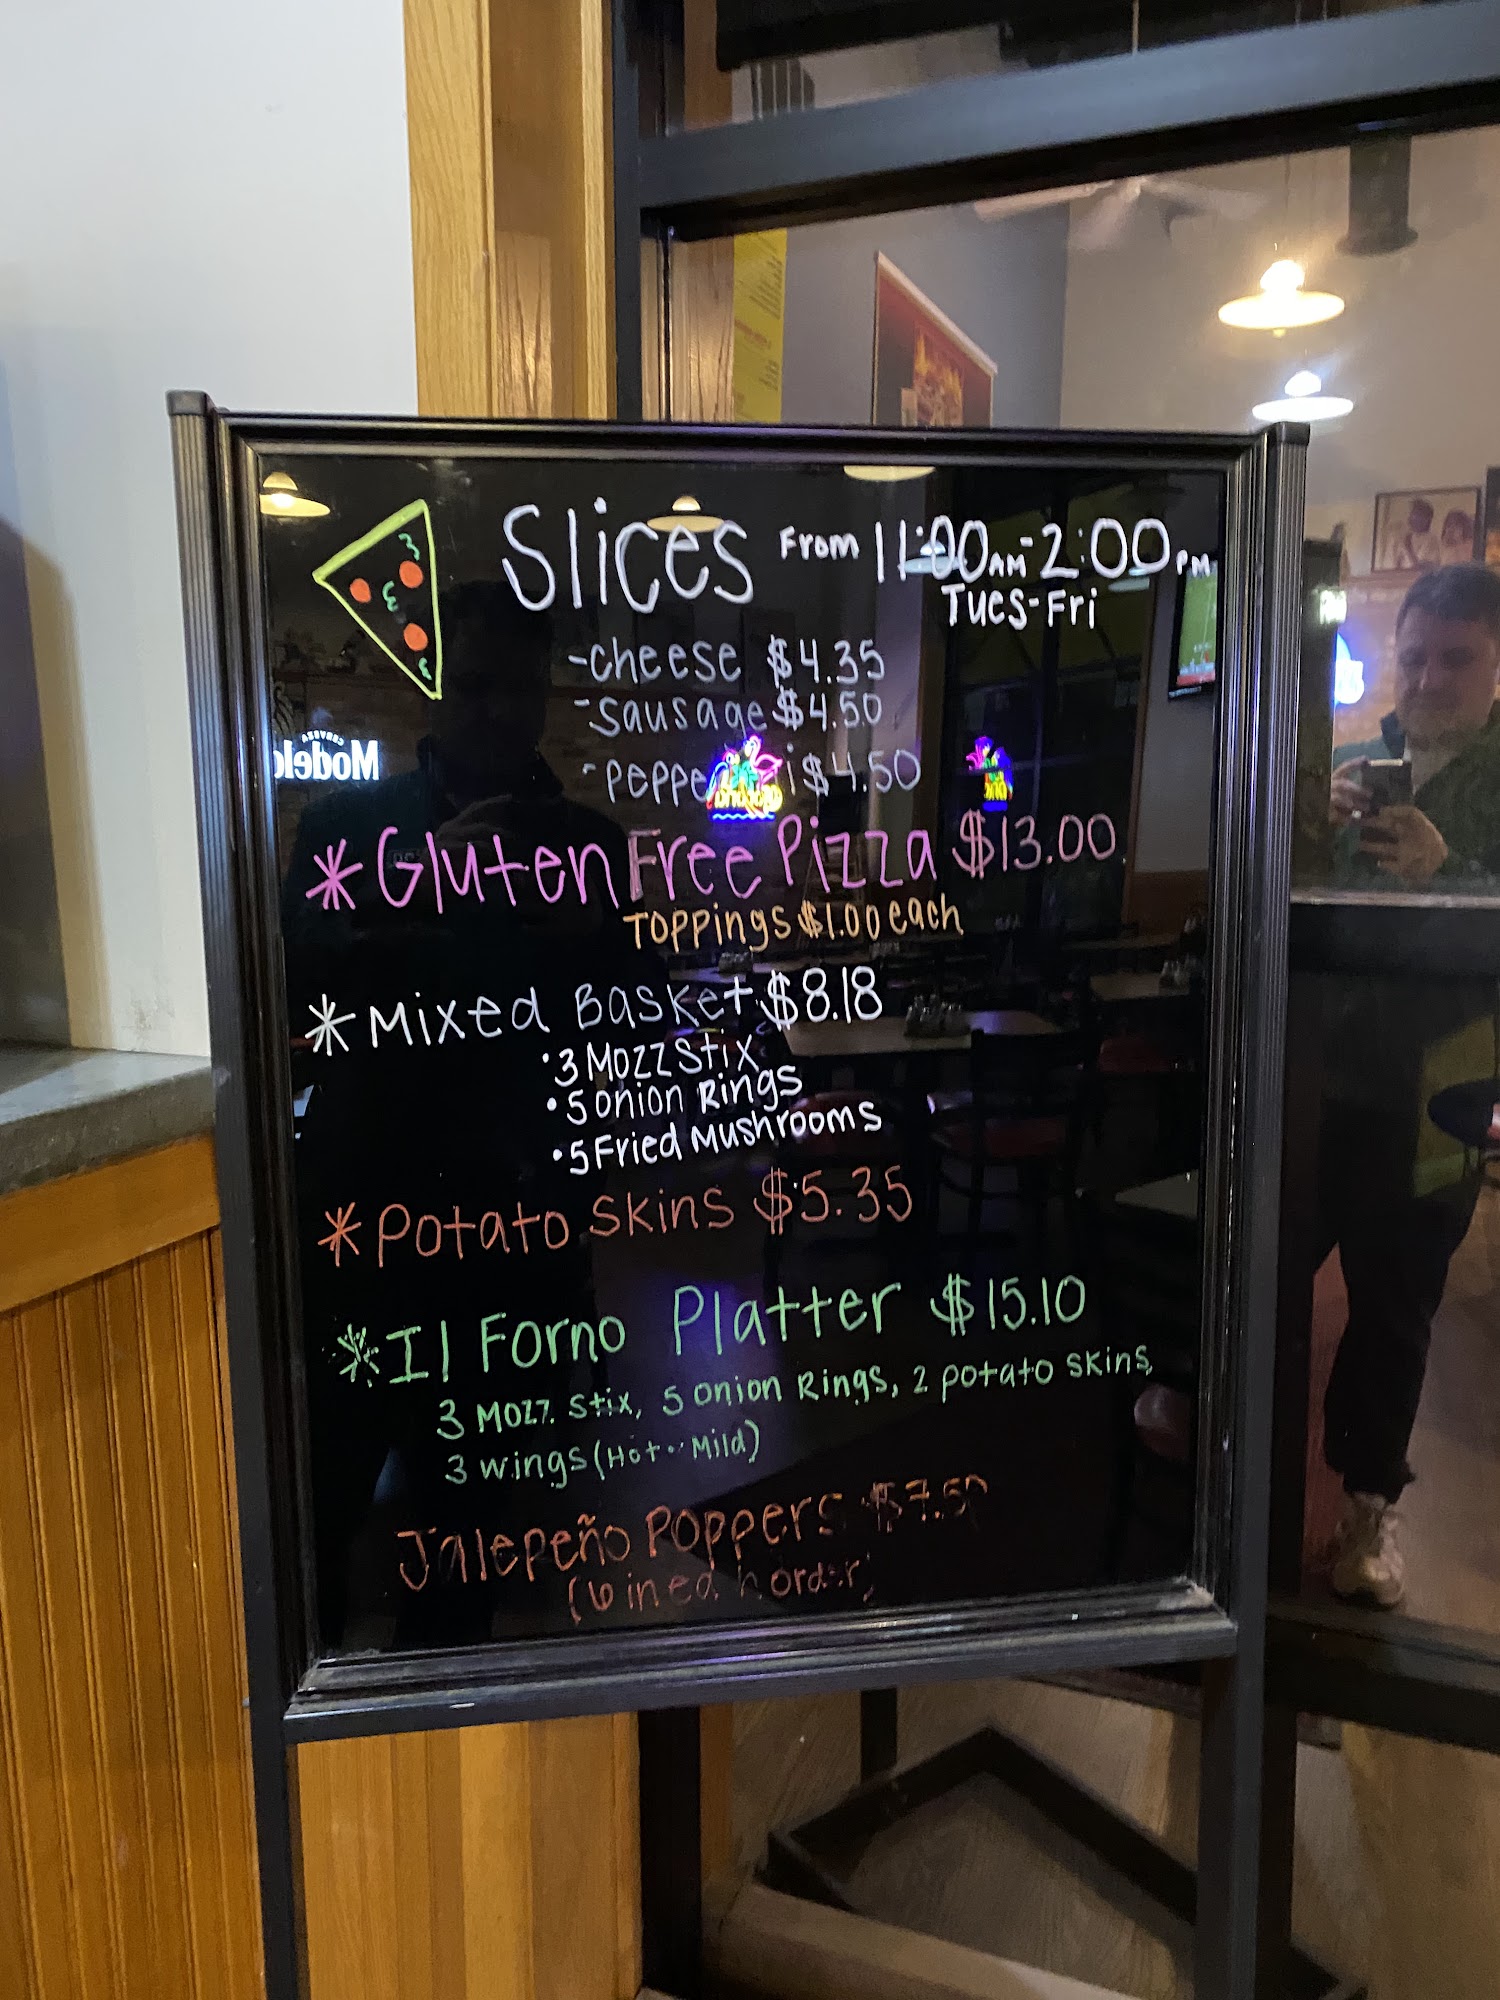 Slices From 11:00AM-2:00PM
Tues-Fri
-cheese $4.35
-sausage $4.50
-peppe i $4.50
*Gluten Free Pizza $13.00
Toppings $1.00 each
*Mixed Basket $8.18
•3 Mozz Stix
•5 Onion Rings
•5 Fried Mushrooms
*Potato Skins $5.35
*Il Forno Platter $15.10
3 Mozz. Stix, 5 Onion Rings, 2 Potato Skins,
3 wings (Hot or Mild)
Jalepeño Poppers $7.50
order)
Modelo